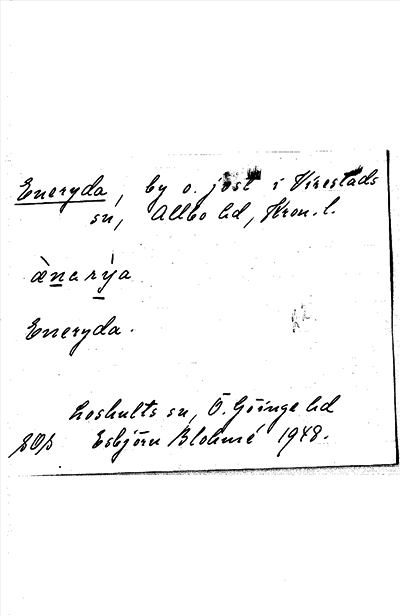 Eneryda, by o. jost i Virestads
sn, Allbo hd, Kron. l.
ànarýa
Eneryda.
Loshults sn, Ö. Göinge hd
Esbjörn Blohmé 1948.